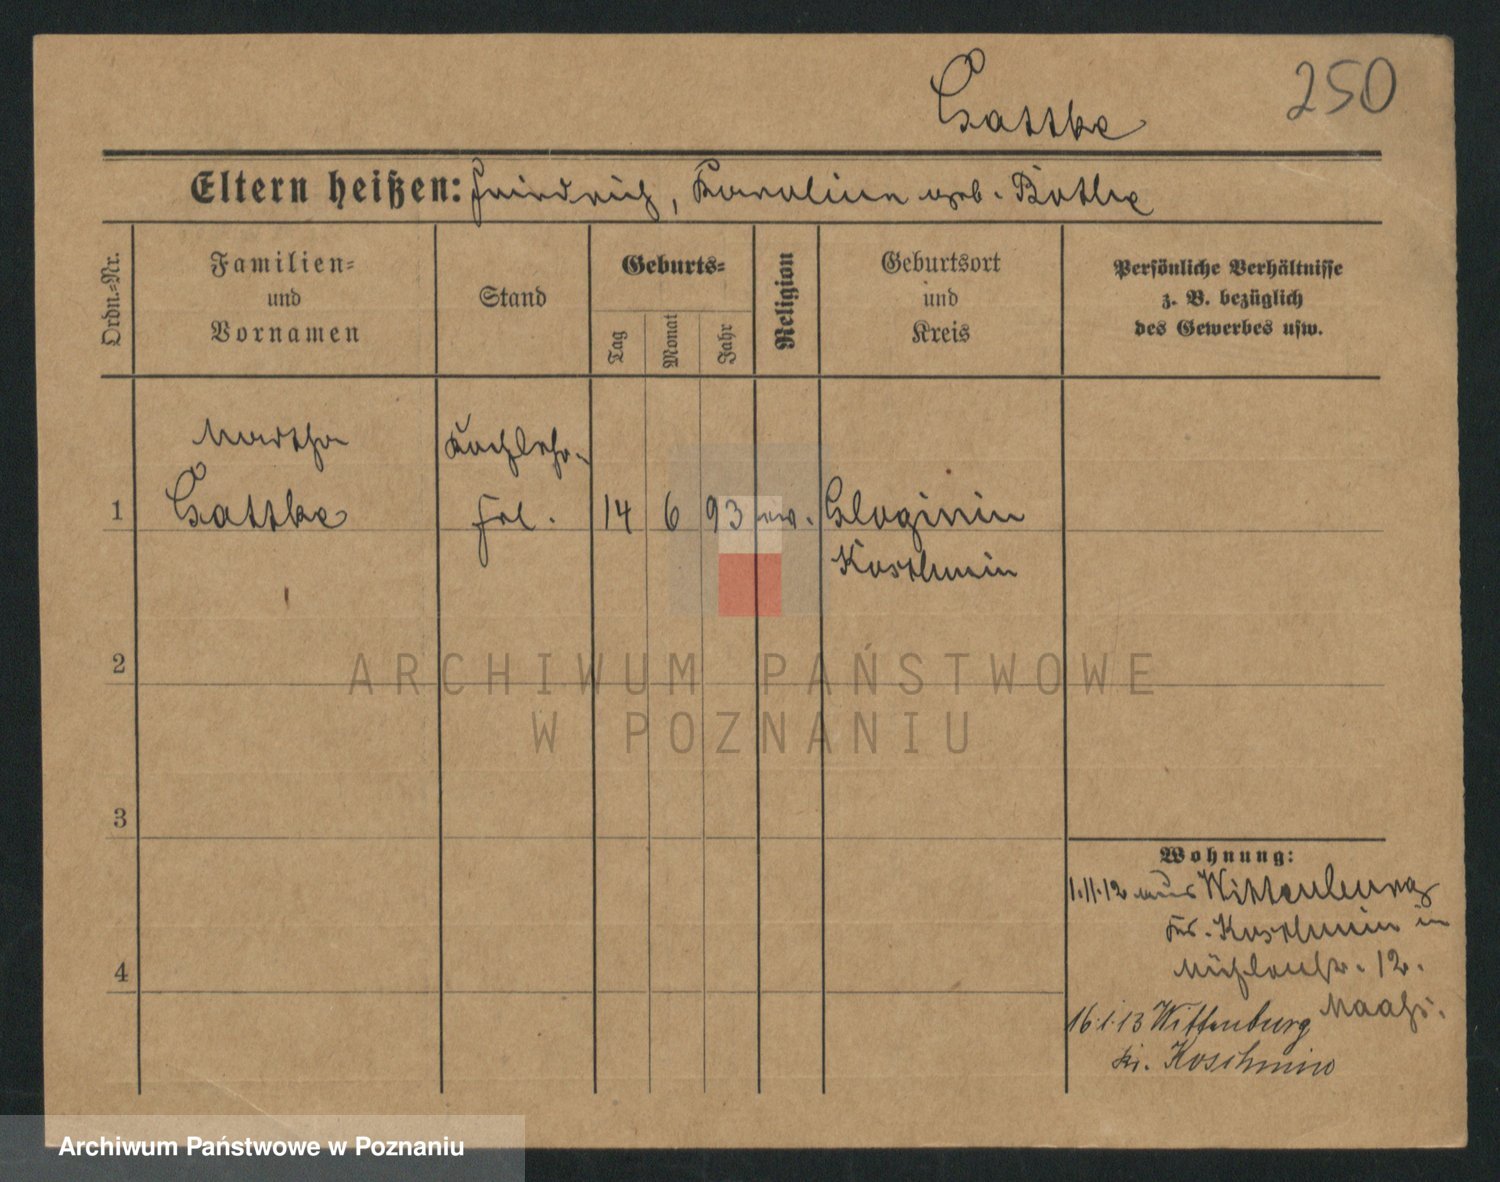 250
Gattke
Eltern heißen: Friedrich, Karoline geb. Bothe
Ordn.=Nr.
Familien=
und
Vornamen
Stand
Geburts=
Tag
Monat
Jahr
Religion
Geburtsort
und
Kreis
Persönliche Verhältnisse
z. B. bezüglich
des Gewerbes usw.
Martha Kochlehr-
1 Gattke Frl. 14 6 93 ev. Gloginin
Koschmin
2
ARCHIWUM PAŃSTWOWE
W POZNANIU
3
Wohnung:
1.11.12 aus Wittenburg
Krs. Koschmin in
4 Mühlenstr. 12.
16.1.13 Wittenburg
Kr. Koschmin
Archiwum Państwowe w Poznaniu